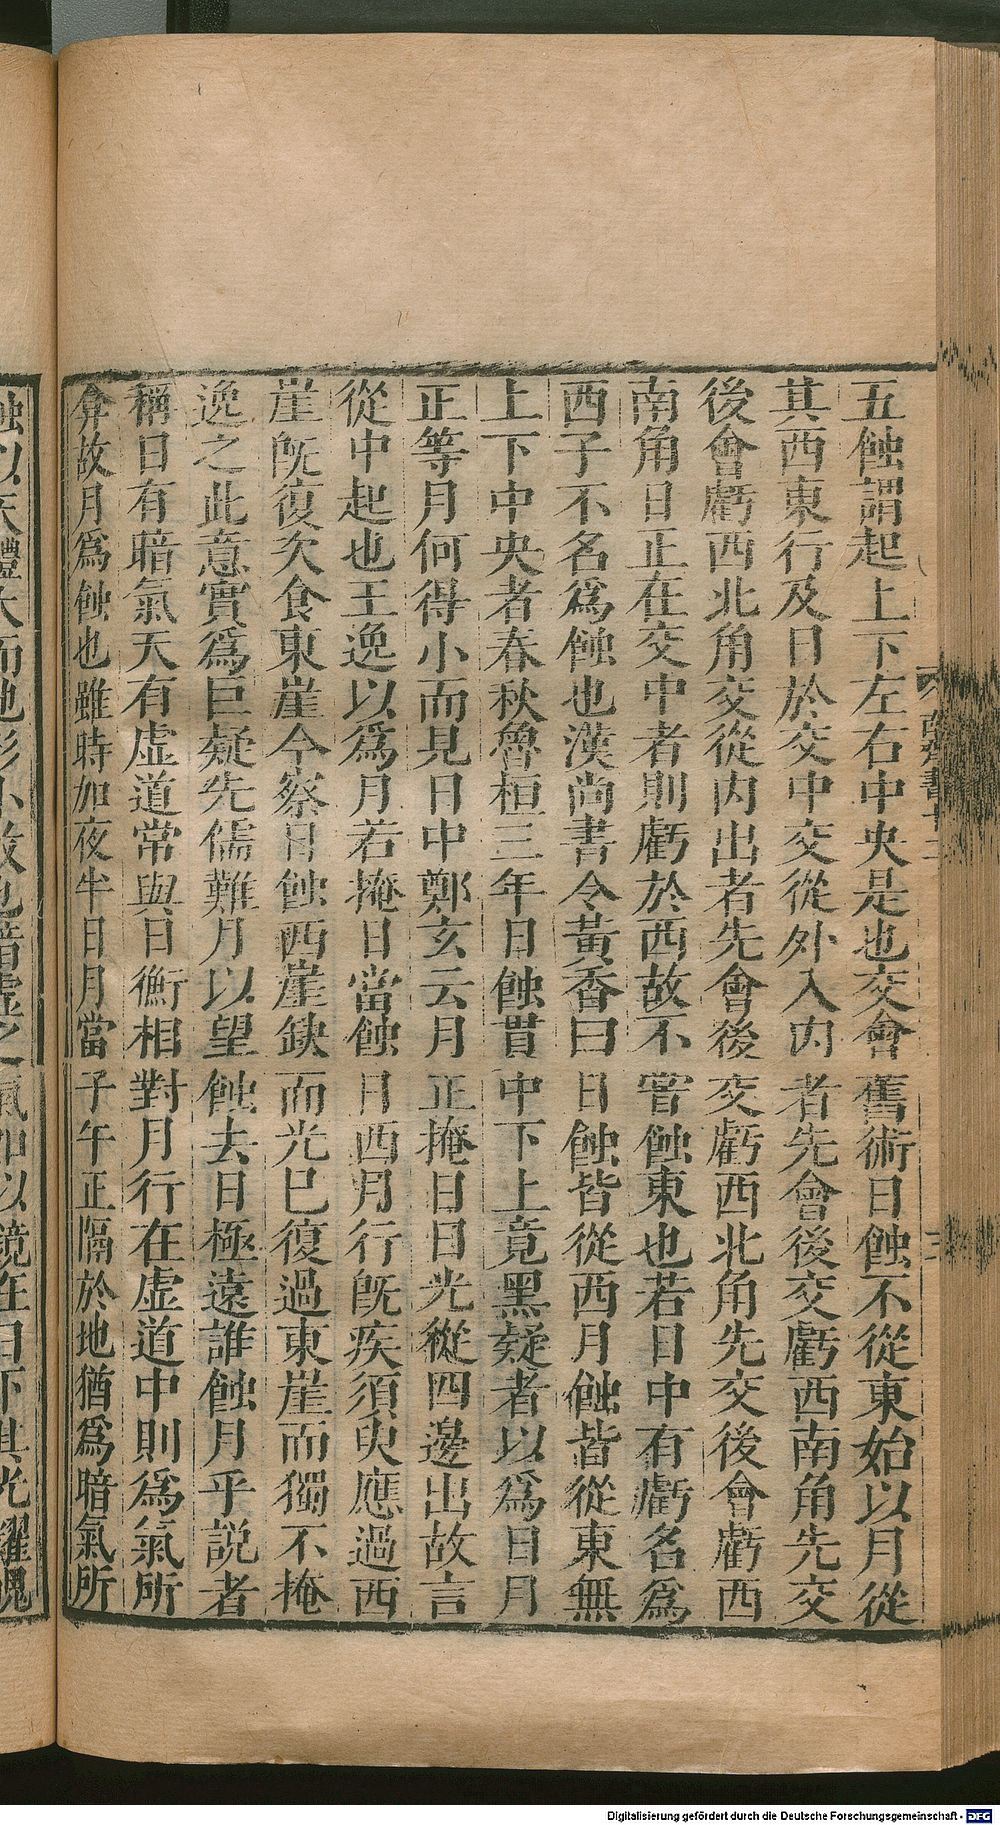 五蝕謂起上下左右中央是也交會舊術日蝕不從東始以月從
其西東行及日於交中交從外入內者先會後交虧西南角先交
後會虧西北角交從內出者先會後交虧西北角先交後會虧西
南角日正在交中者則虧於西故不嘗蝕東也若日中有虧名為
西子不名為蝕也漢尚書令黃香曰日蝕皆從西月蝕皆從東無
上下中央者春秋魯桓三年日蝕貫中下上竟黑疑者以為日月
正等月何得小而見日中鄭玄云月正掩日日光從四邊出故言
從中起也王逸以為月若掩日當蝕日西月行既疾須臾應過西
崖既復次食東崖今察日蝕西崖缺而光已復過東崖而獨不掩
逸之此意實為巨疑先儒難月以望蝕去日極遠誰蝕月乎說者
稱日有暗氣天有虛道常與日衡相對月行在虛道中則為氣所
弇故月為蝕也雖時加夜半日月當子午正隔於地猶為暗氣所
蝕以天體大而地形小故也暗虛之氣如以鏡在日下其光耀魄
Digitalisierung gefördert durch die Deutsche Forschungsgemeinschaft - DFG